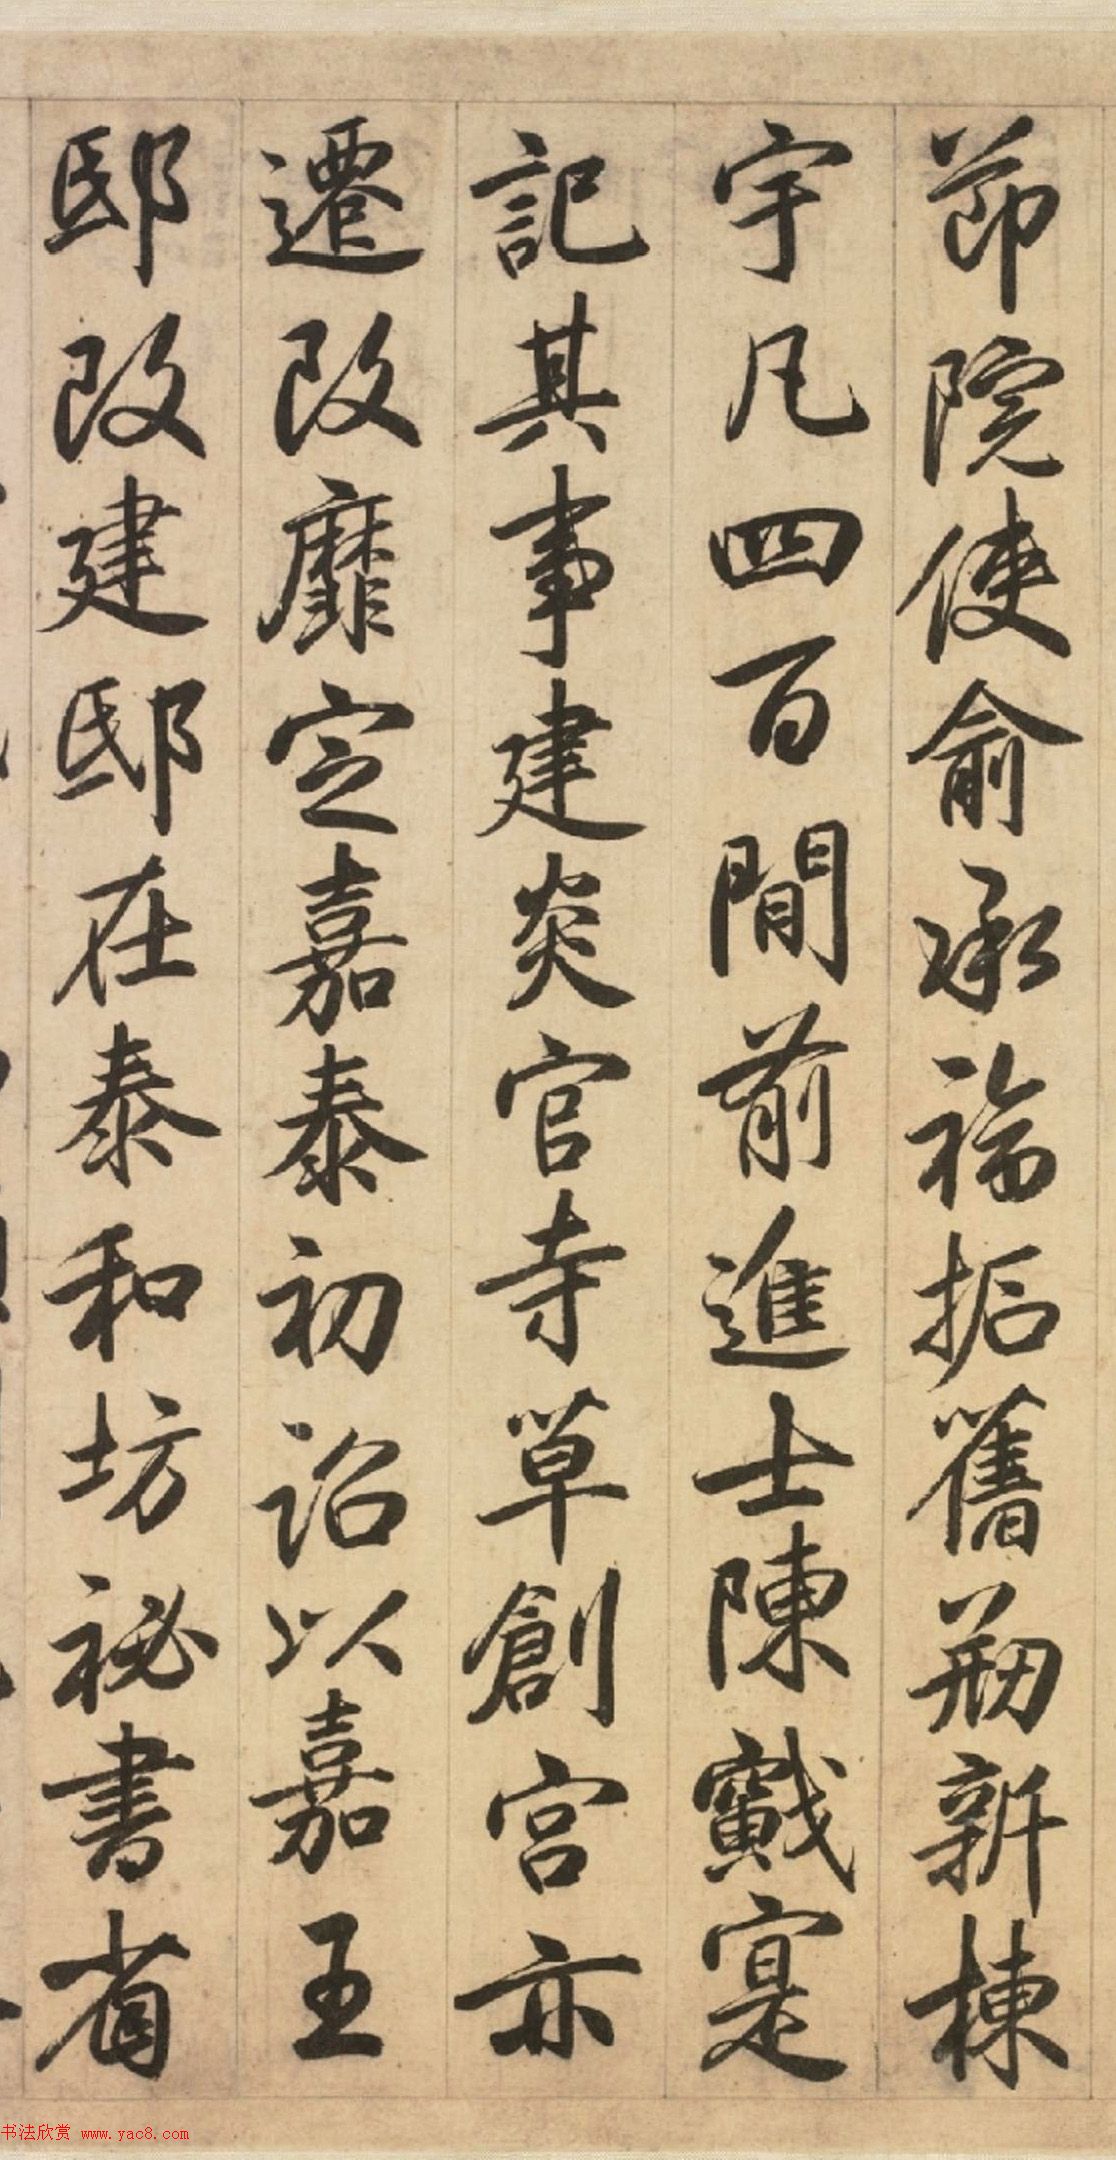 節院使俞承福掁舊剏新棟
宇凡四百間前進士陳戩寔
記其事建炎官寺草創宮亦
遷改靡定嘉泰初詔以嘉王
邸改建邸在泰和坊祕書省
书法欣赏 www.yac8.com